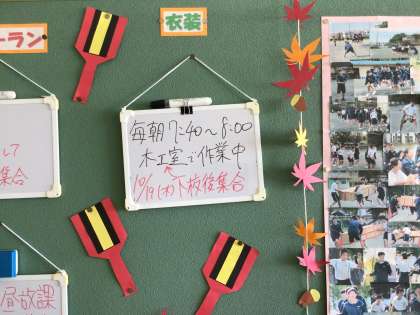 ーラン
衣装
毎朝7:40〜8:00
木工室で作業中
10/19(木)下校後集合
して
集合
昼放課